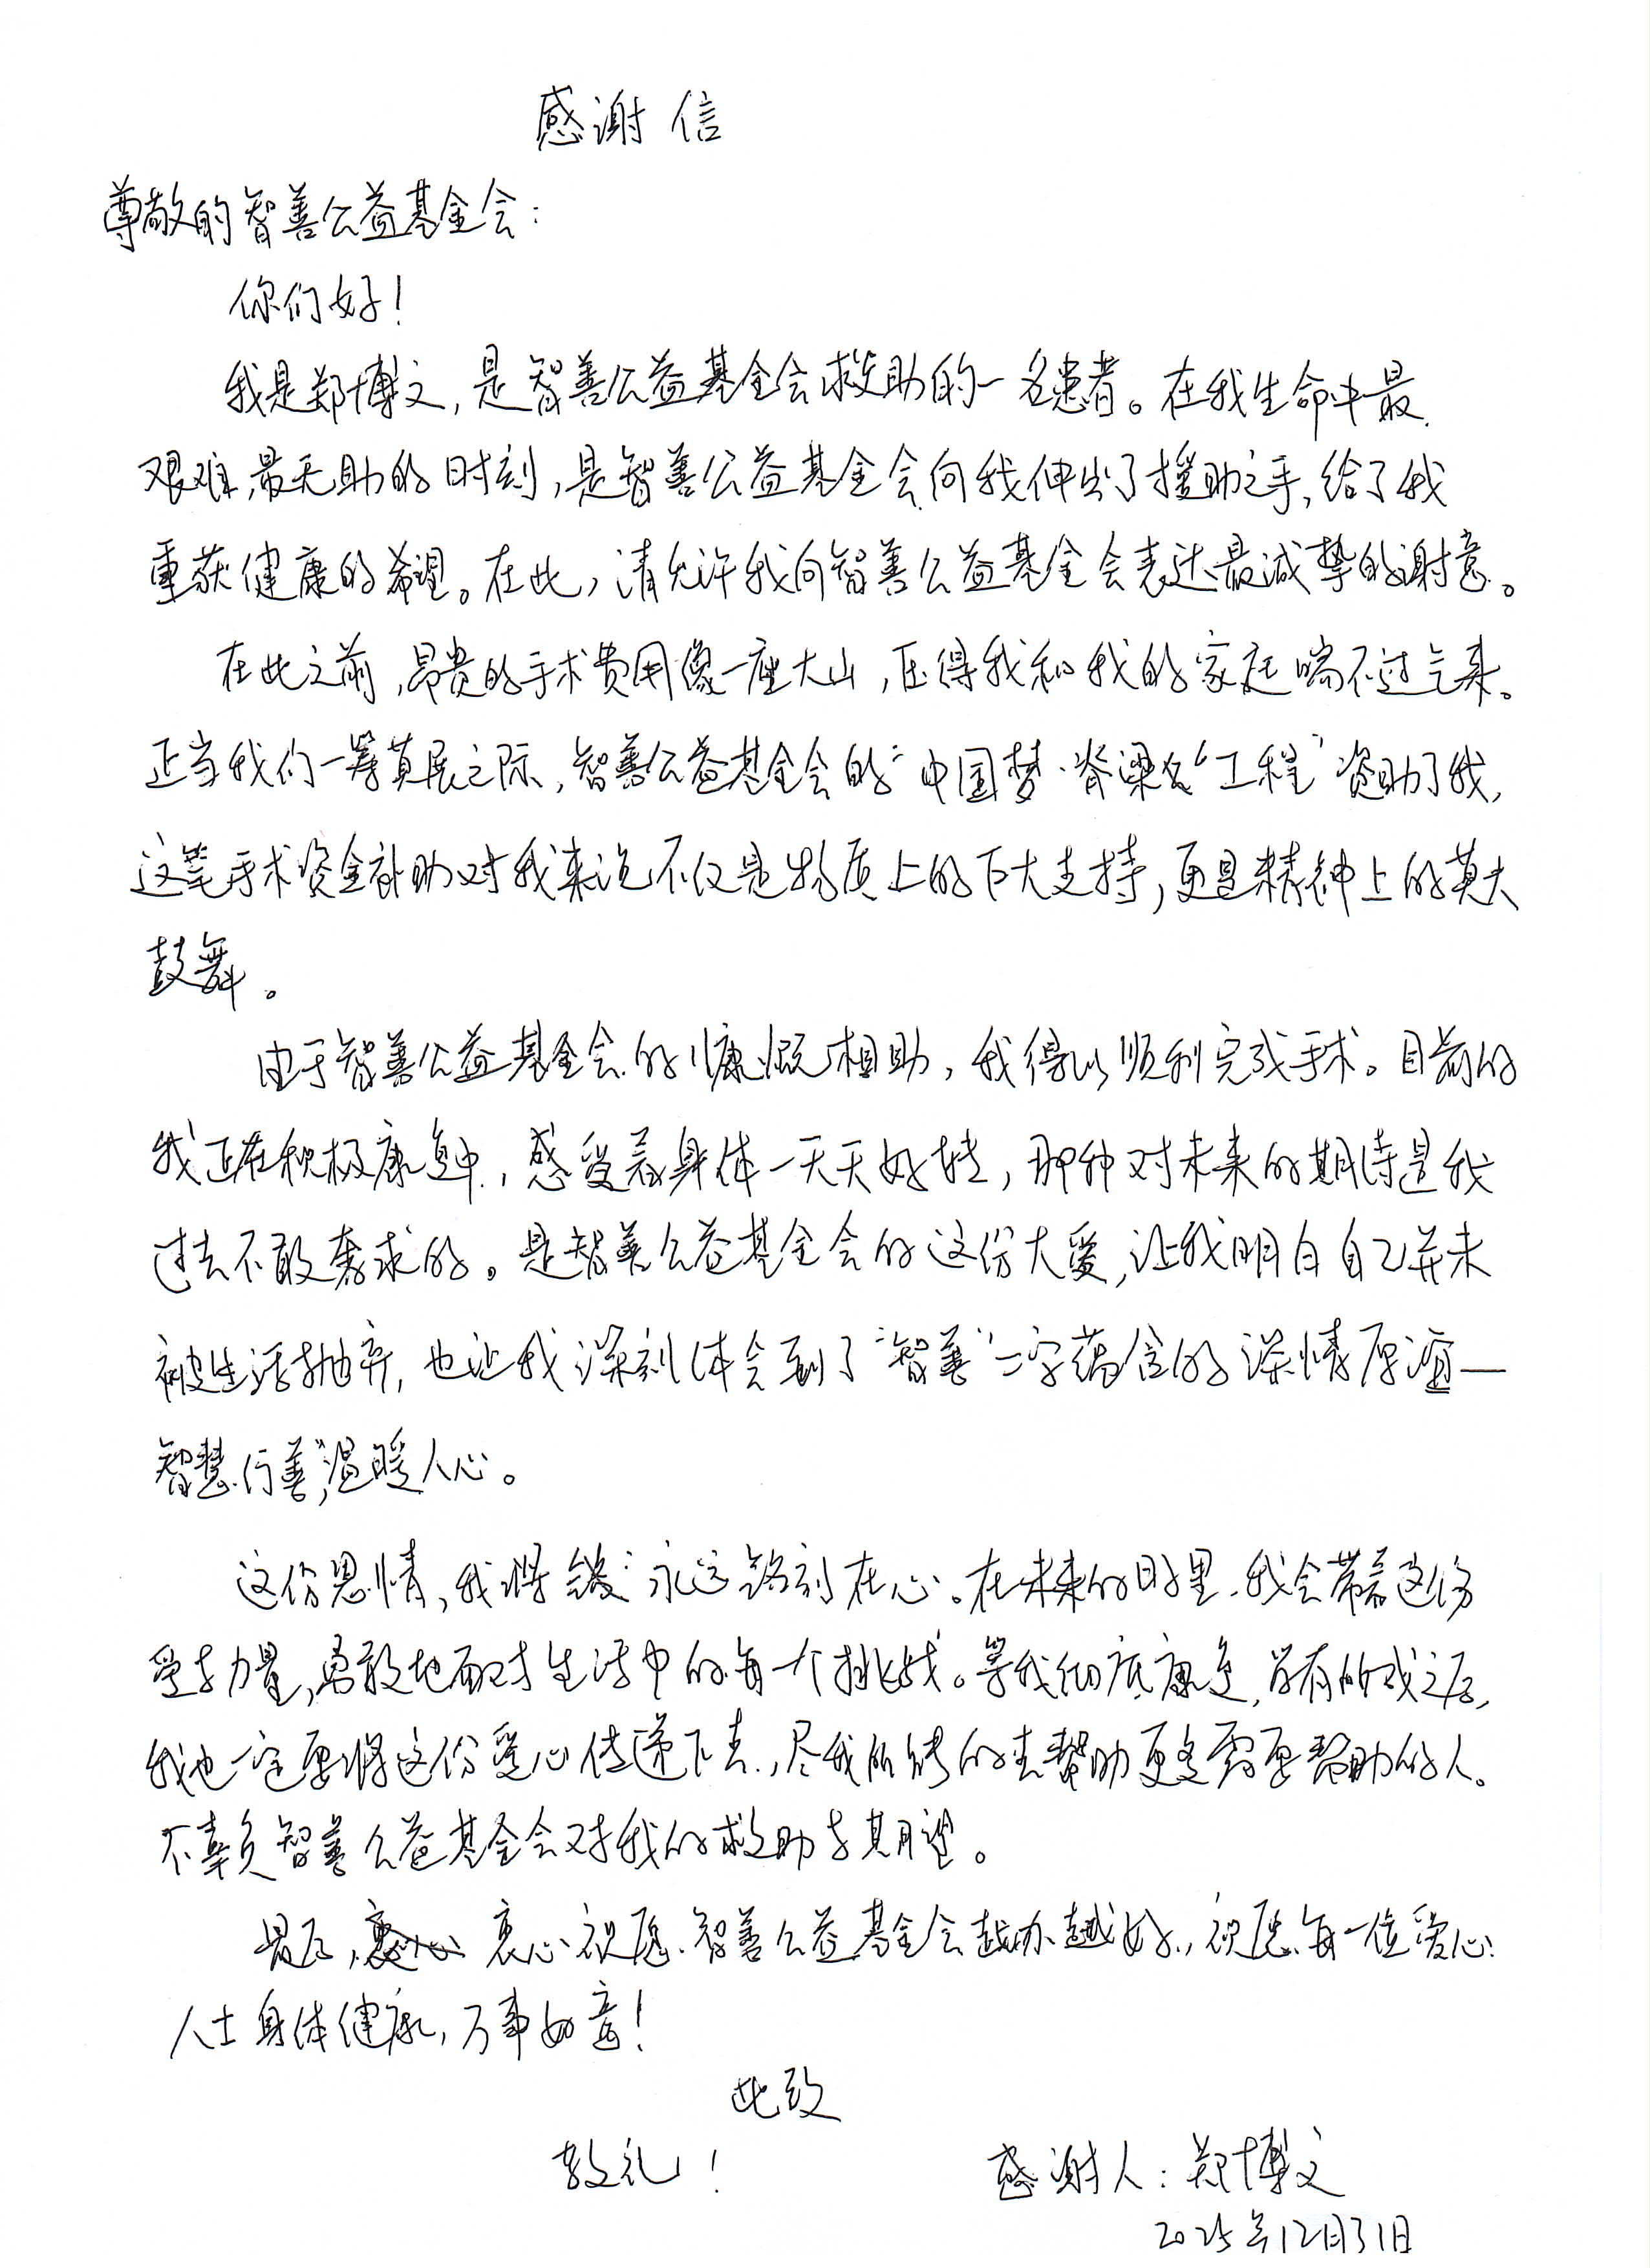 感谢信
尊敬的智善公益基金会：
你们好！
我是郑博文，是智善公益基金会救助的一名患者。在我生命中最
艰难、最无助的时刻，是智善公益基金会向我伸出了援助之手，给了我
重获健康的希望。在此，请允许我向智善公益基金会表达最诚挚的谢意。
在此之前，昂贵的手术费用像一座大山，压得我和我的家庭喘不过气来。
正当我们一筹莫展之际，智善公益基金会的“中国梦·脊梁工程”资助了我，
这笔手术资金补助对我来说不仅是物质上的巨大支持，更是精神上的莫大
鼓舞。
由于智善公益基金会的慷慨相助，我得以顺利完成手术。目前的
我正在积极康复中，感受着身体一天天好转，那种对未来的期待是我
过去不敢奢求的。是智善公益基金会的这份大爱，让我明白自己并未
被生活抛弃，也让我深刻体会到了“智善”二字蕴含的深情厚谊—
智慧行善，温暖人心。
这份恩情，我将永远铭刻在心。在未来的日子里，我会带着这份
爱与力量，勇敢地面对生活中的每一个挑战。等我彻底康复，学有所成之后，
我也一定要将这份爱心传递下去，尽我所能的去帮助更多需要帮助的人。
不辜负智善公益基金会对我的救助与期望。
最后，衷心祝愿智善公益基金会越办越好，祝愿每一位爱心
人士身体健康，万事如意！
此致
敬礼！
感谢人：郑博文
2025年12月31日